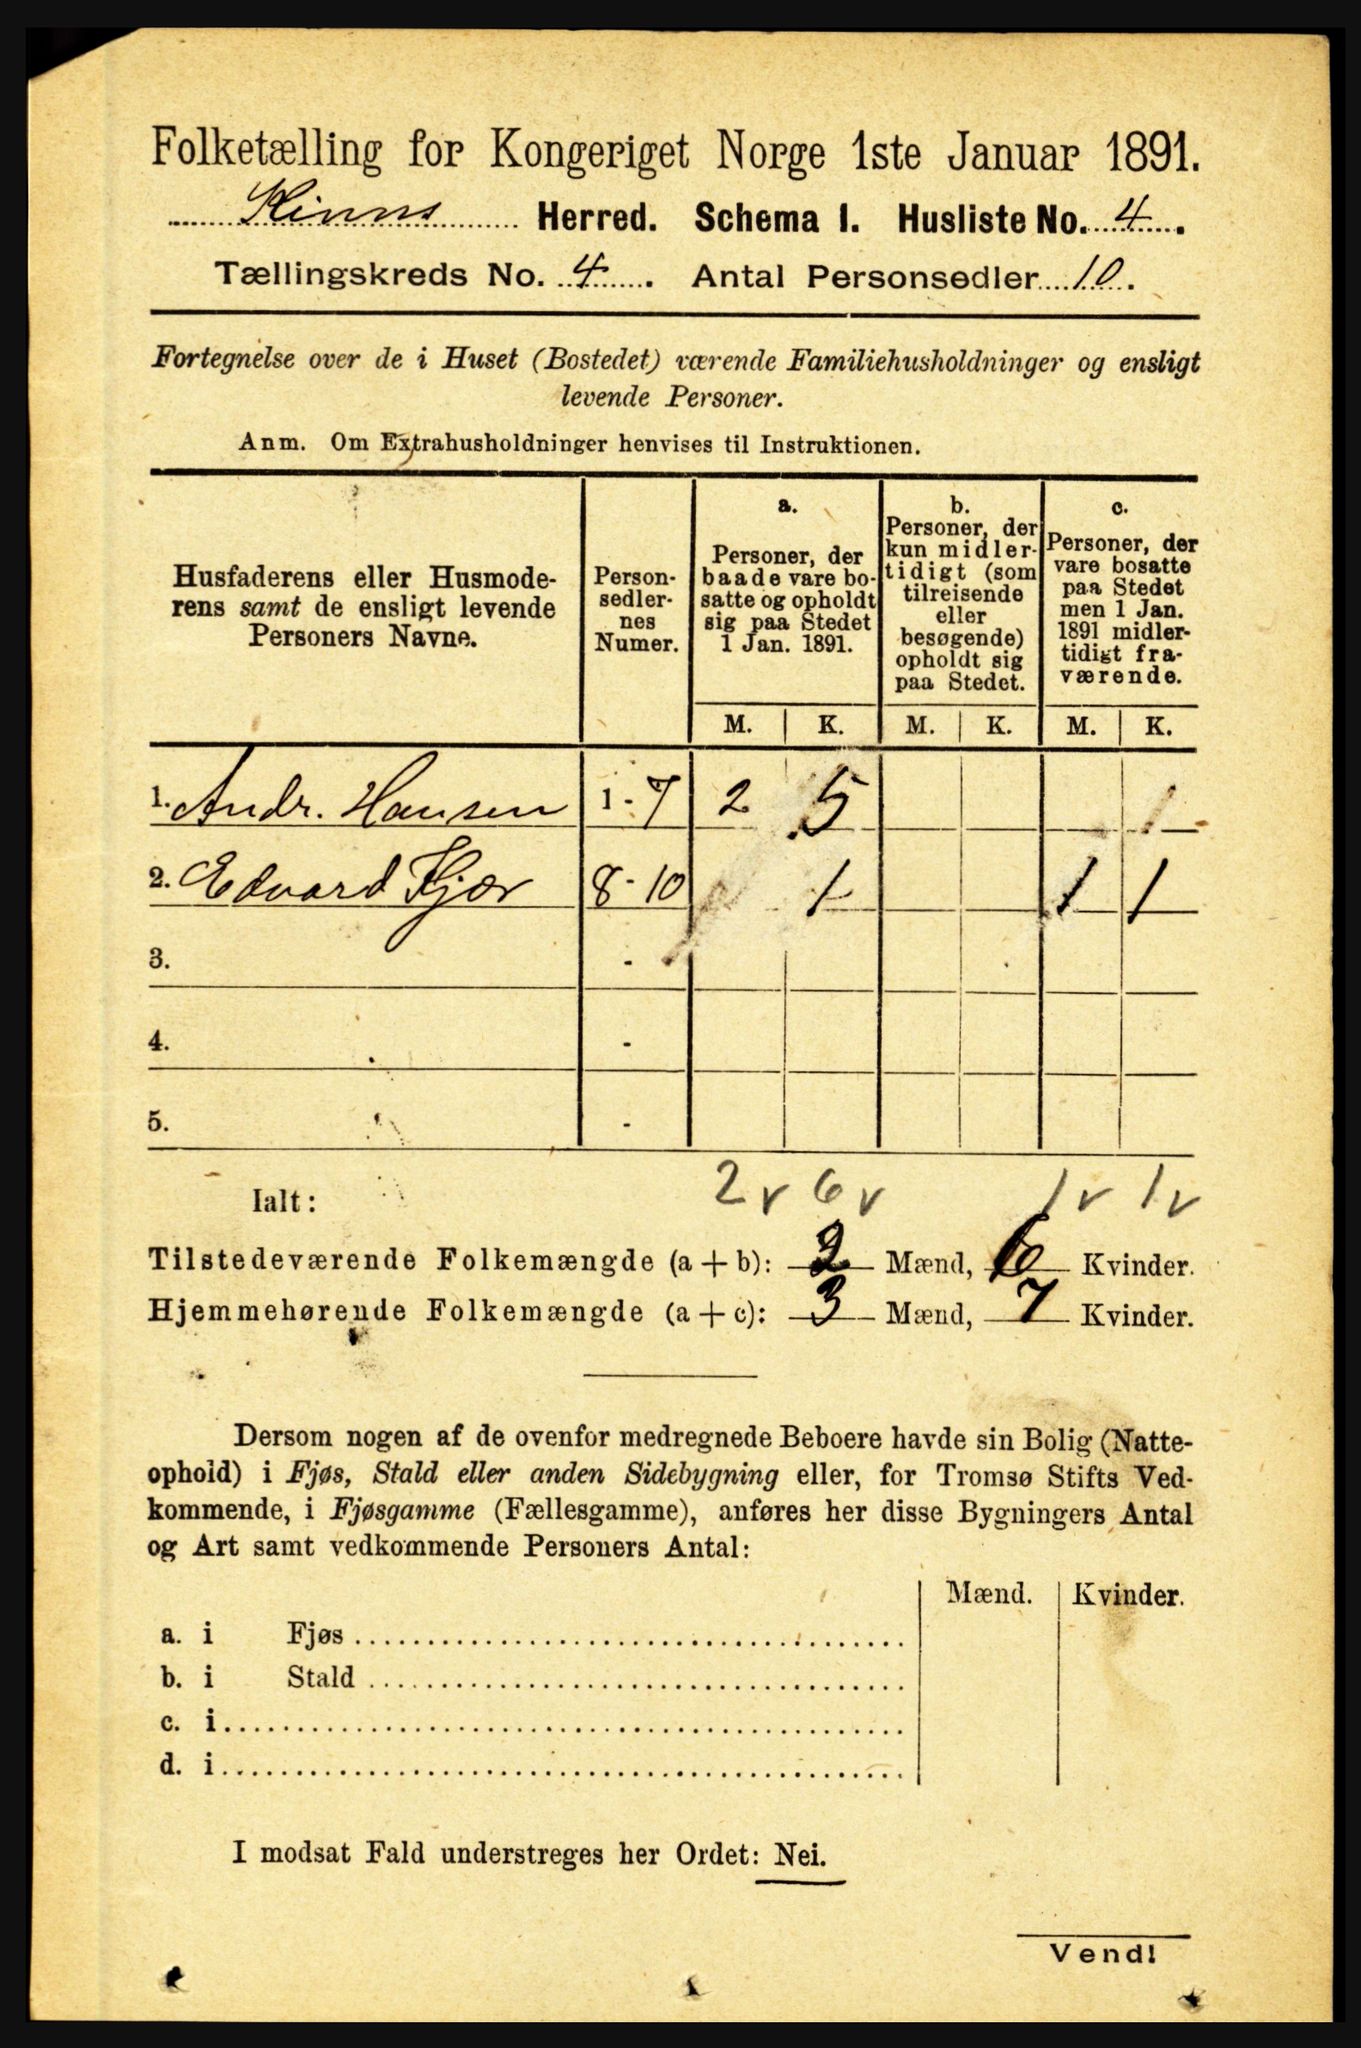 Folketælling for Kongeriget Norge 1ste Januar 1891.
Kinns Herred. Schema I. Husliste No. 4.
Tællingskreds No. 4. Antal Personsedler 10.
Fortegnelse over de i Huset (Bostedet) værende Familiehusholdninger og ensligt
levende Personer.
Anm. Om Extrahusholdninger henvises til Instruktionen.
Husfaderens eller Husmode-
rens samt de ensligt levende
Personers Navne.
Person-
sedler-
nes
Numer.
a.
Personer, der
baade vare bo-
satte og opholdt
sig paa Stedet
1 Jan. 1891.
b.
Personer, der
kun midler-
tidigt (som
tilreisende
eller
besøgende)
opholdt sig
paa Stedet.
c.
Personer, der
vare bosatte
paa Stedet
men 1 Jan.
1891 midler-
tidigt fra-
værende.
M. K. M. K. M. K.
1. Andr. Hansen 1-7 2 5
2. Edvard Kjær 8-10 1 1 1
3. -
4. -
5. -
Ialt: 2 v 6 v 1 v 1 v
Tilstedeværende Folkemængde (a + b): 2 Mænd, 6 Kvinder.
Hjemmehørende Folkemængde (a + c): 3 Mænd, 7 Kvinder.
Dersom nogen af de ovenfor medregnede Beboere havde sin Bolig (Natte-
ophold) i Fjøs, Stald eller anden Sidebygning eller, for Tromsø Stifts Ved-
kommende, i Fjøsgamme (Fællesgamme), anføres her disse Bygningers Antal
og Art samt vedkommende Personers Antal:
Mænd. Kvinder.
a. i Fjøs
b. i Stald
c. i
d. i
I modsat Fald understreges her Ordet: Nei.
Vend!